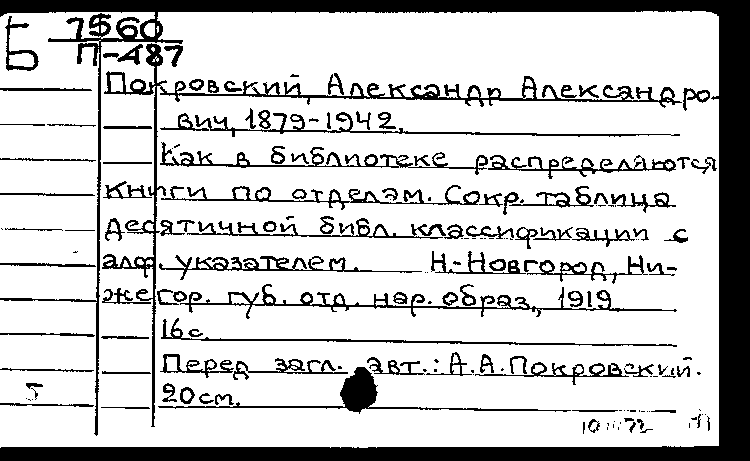 Б 7560
П-487
Покровский, Александр Александро-
вич, 1879-1942.
Как в библиотеке распределяются
книги по отделам. Сокр. таблица
десятичной библ. классификации с
алф. указателем. Н.-Новгород, Ни-
жегор. губ. отд. нар. образ., 1919.
16 с.
Перед загл. авт.: А.А. Покровский.
5 20 см.